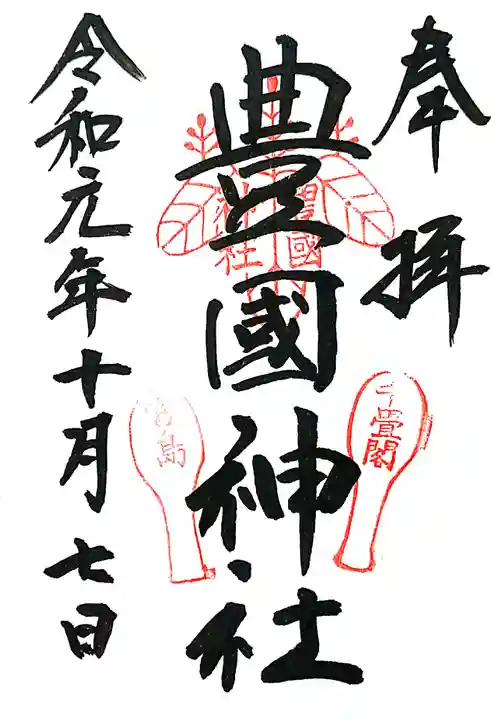 奉拝
豊國神社
豊國
神社
千畳閣
宮島
令和元年十月七日